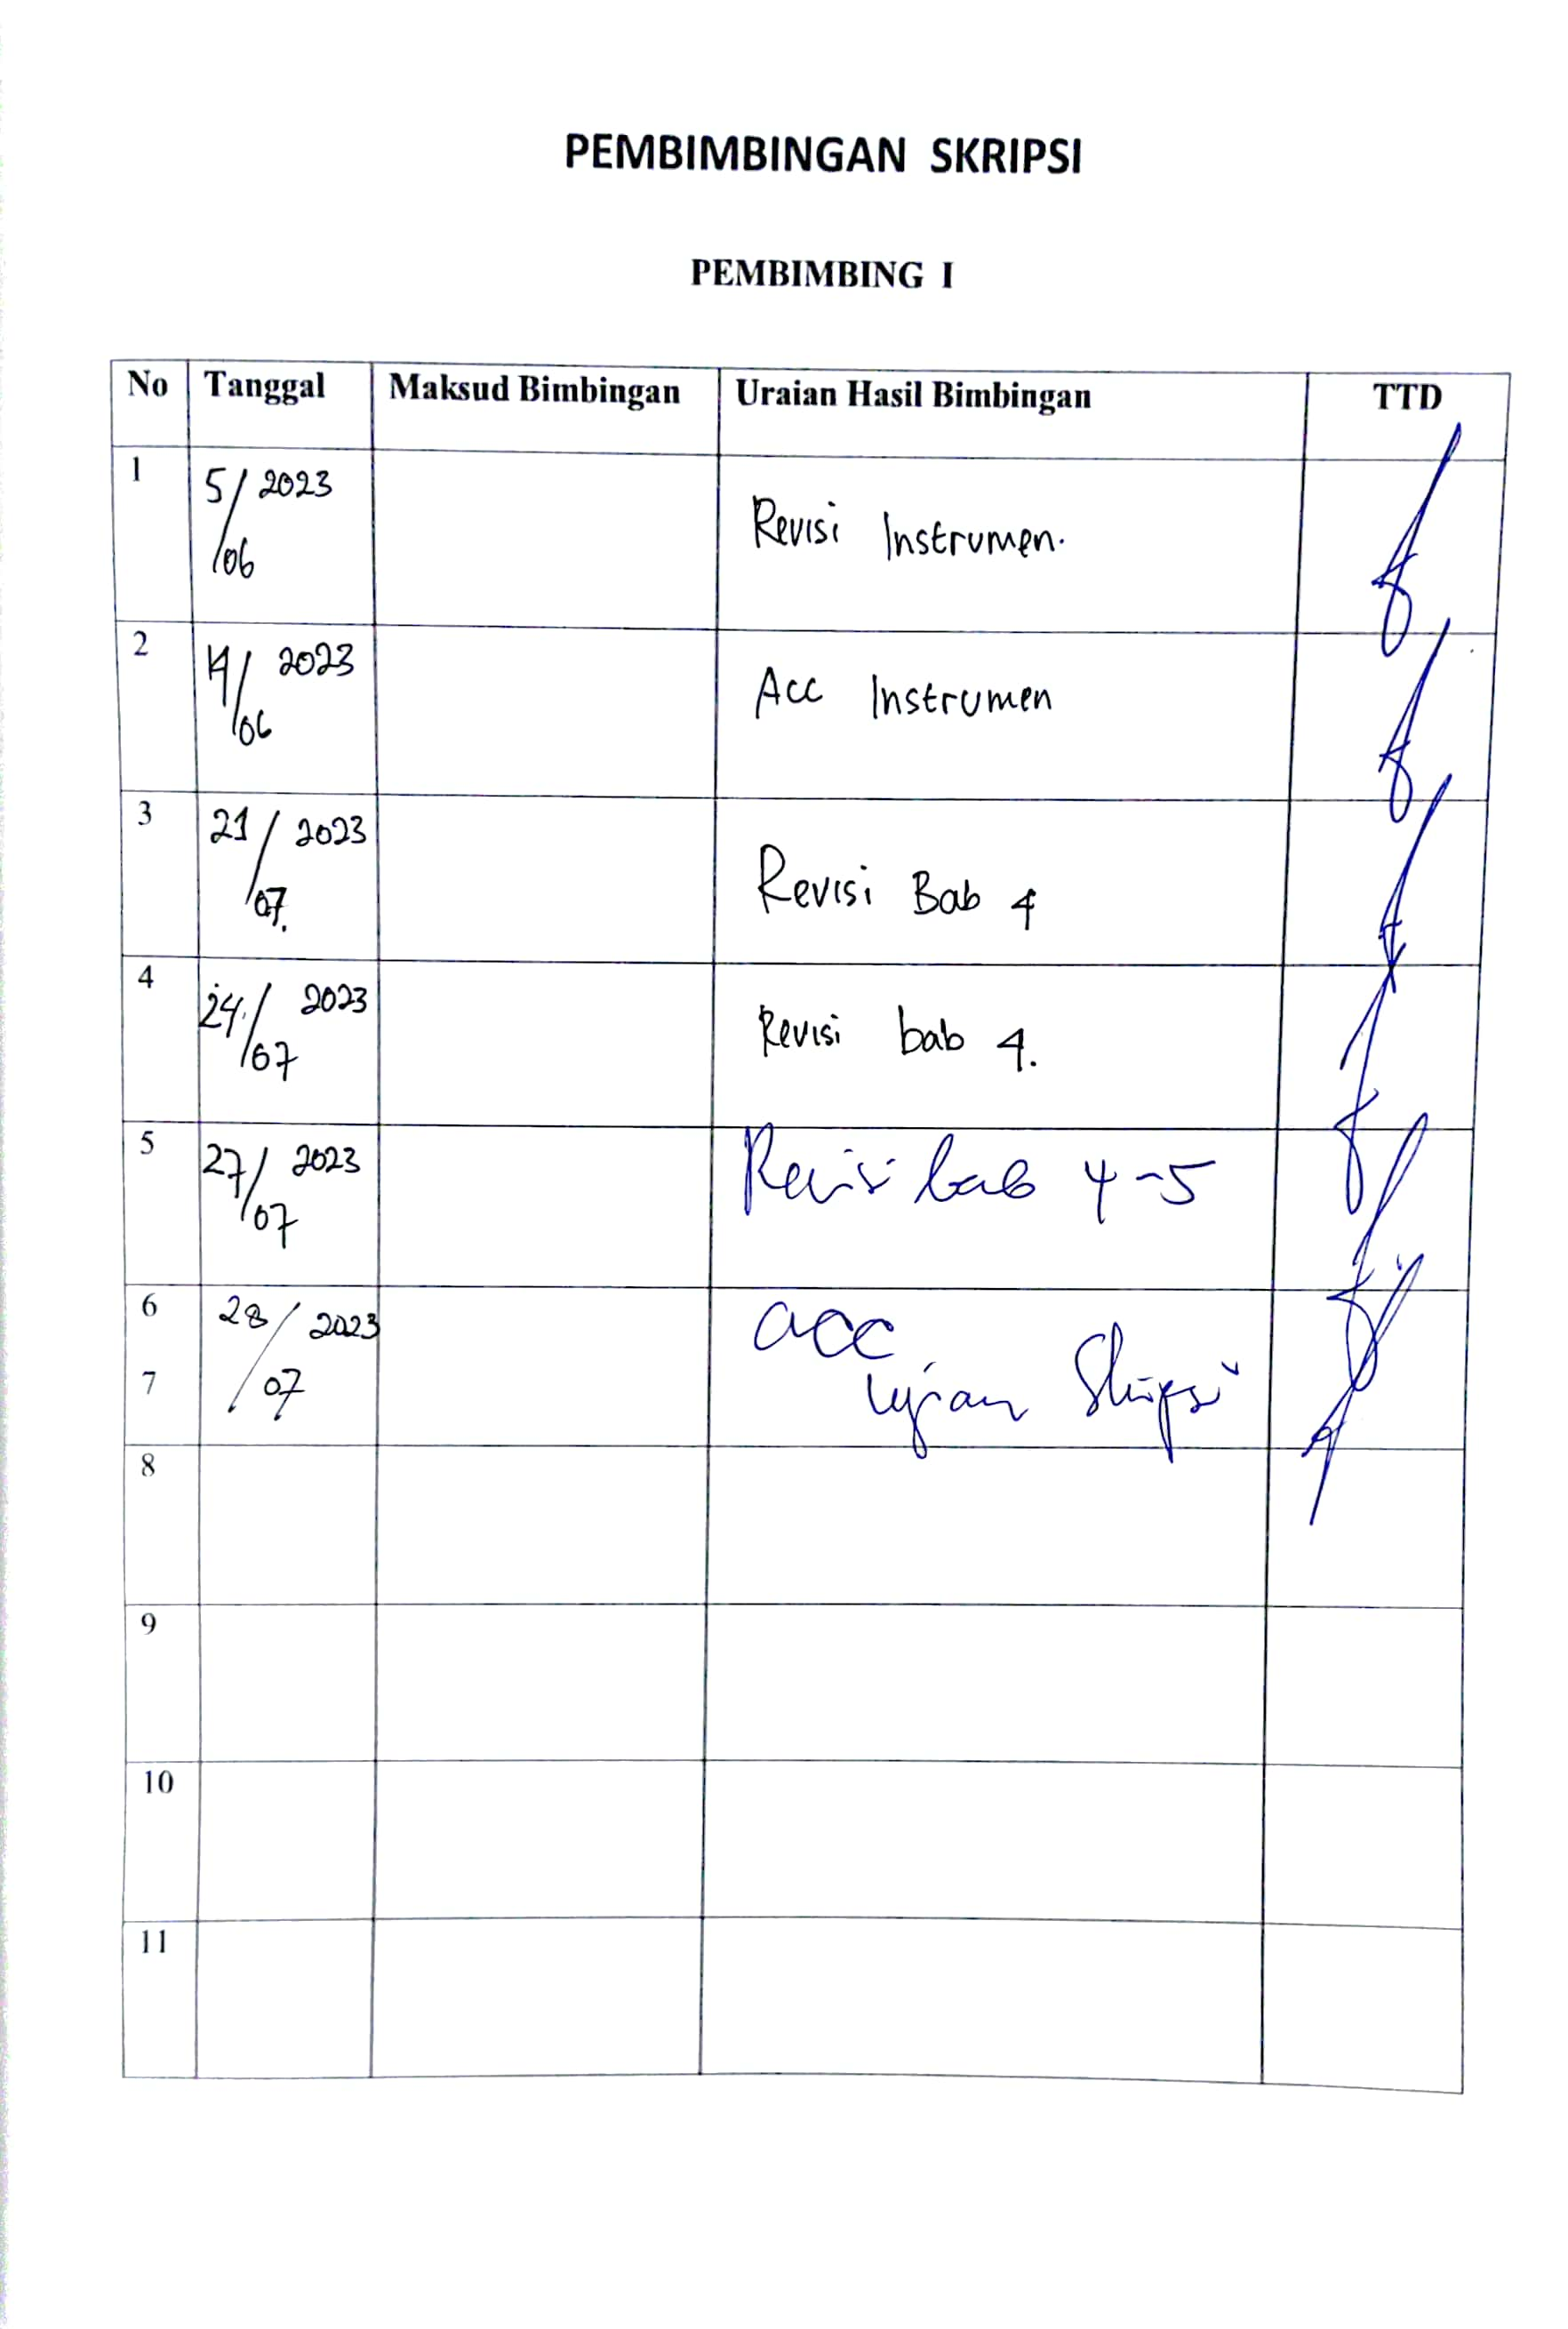 PEMBIMBINGAN SKRIPSI
PEMBIMBING I
No Tanggal Maksud Bimbingan Uraian Hasil Bimbingan TTD
1 5/2023
/06 Revisi Instrumen.
2 14/2023
/06 Acc Instrumen
3 21/2023
/07. Revisi Bab 4
4 24/2023
/07 Revisi bab 4.
5 27/2023
/07 Revisi bab 4-5
6 28/2023 acc
7 /07 ujian Skripsi
8
9
10
11